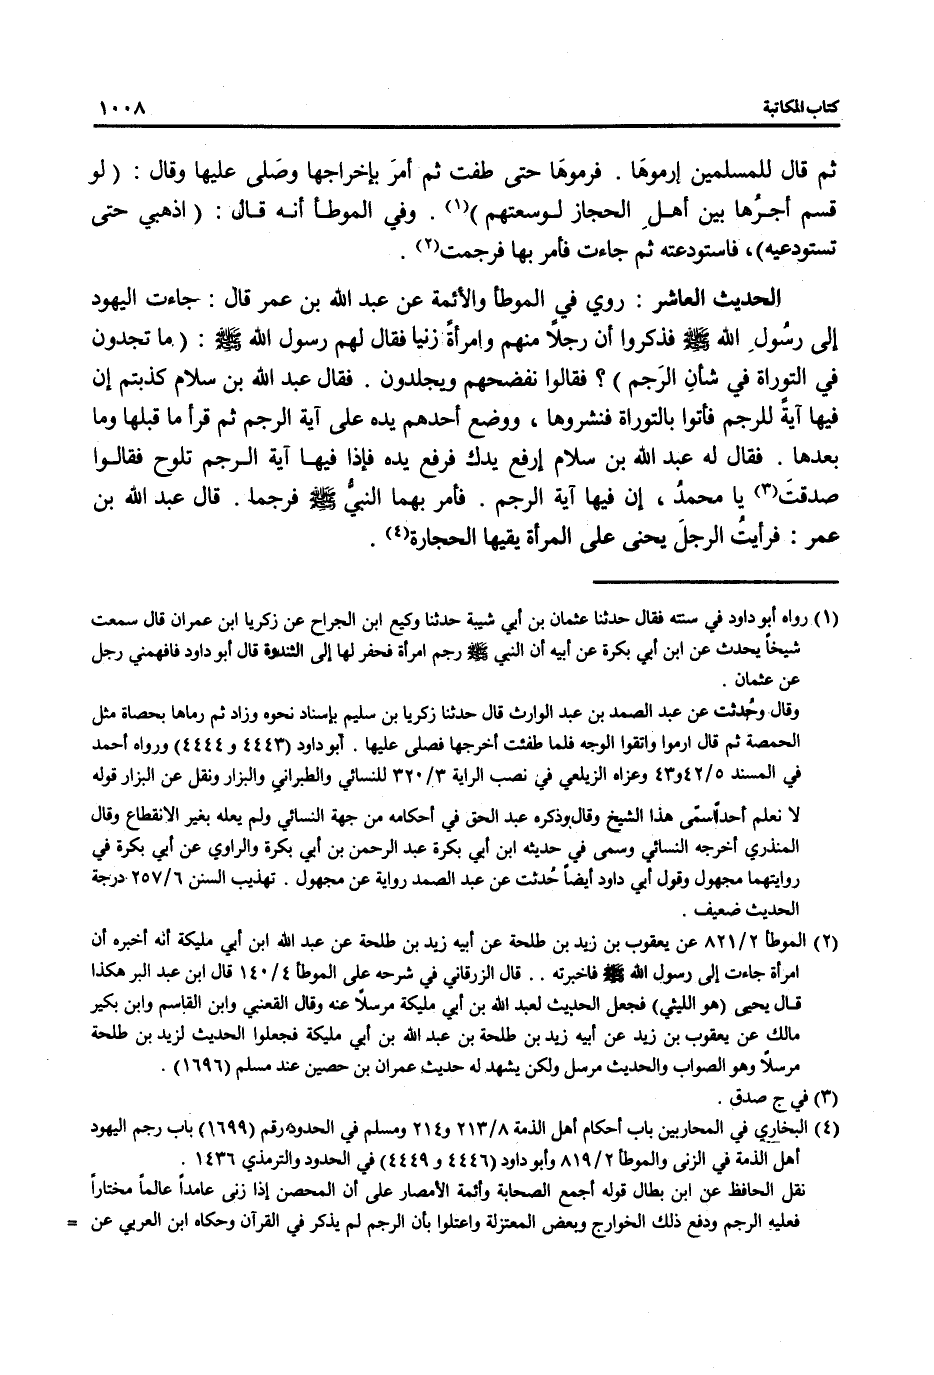 كتاب المكاتبة ١٠٠٨
ثم قال للمسلمين إرموهَا . فرموهَا حتى طفت ثم أمرَ بإخراجها وصَلى عليها وقال : ( لو
قسم أجرُها بين أهلِ الحجاز لوسعتهم )(١) . وفي الموطأ أنه قال : ( اذهبي حتى
تستودعيه)، فاستودعته ثم جاءت فأمر بها فرجمت(٢) .
الحديث العاشر : روي في الموطأ والأئمة عن عبد الله بن عمر قال : جاءت اليهود
إلى رسُولِ الله ﷺ فذكروا أن رجلاً منهم وامرأةً زنيا فقال لهم رسول الله ﷺ : ( ما تجدون
في التوراة في شأنِ الرَجم ) ؟ فقالوا نفضحهم ويجلدون . فقال عبد الله بن سلام كذبتم إن
فيها آيةً للرجم فأتوا بالتوراة فنشروها ، ووضع أحدهم يده على آية الرجم ثم قرأ ما قبلها وما
بعدها . فقال له عبد الله بن سلام إرفع يدك فرفع يده فإذا فيها آية الرجم تلوح فقالوا
صدقتَ(٣) يا محمدُ ، إن فيها آية الرجم . فأمر بهما النبيُّ ﷺ فرجما . قال عبد الله بن
عمر : فرأيتُ الرجلَ يحنى على المرأة يقيها الحجارة(٤) .
(١) رواه أبو داود في سننه فقال حدثنا عثمان بن أبي شيبة حدثنا وكيع ابن الجراح عن زكريا ابن عمران قال سمعت
شيخاً يحدث عن ابن أبي بكرة عن أبيه أن النبي ﷺ رجم امرأة فحفر لها إلى الثندوة قال أبو داود فافهمني رجل
عن عثمان .
وقال وحُدثت عن عبد الصمد بن عبد الوارث قال حدثنا زكريا بن سليم بإسناد نحوه وزاد ثم رماها بحصاة مثل
الحمصة ثم قال ارموا واتقوا الوجه فلما طفئت أخرجها فصلى عليها . أبو داود (٤٤٤٣ و ٤٤٤٤) ورواه أحمد
في المسند ٤٢/٥ و٤٣ وعزاه الزيلعي في نصب الراية ٣٢٠/٣ للنسائي والطبراني والبزار ونقل عن البزار قوله
لا نعلم أحداً سمّى هذا الشيخ وقال وذكره عبد الحق في أحكامه من جهة النسائي ولم يعله بغير الانقطاع وقال
المنذري أخرجه النسائي وسمى في حديثه ابن أبي بكرة عبد الرحمن بن أبي بكرة والراوي عن أبي بكرة في
روايتهما مجهول وقول أبي داود أيضاً حُدثت عن عبد الصمد رواية عن مجهول . تهذيب السنن ٢٥٧/٦ درجة
الحديث ضعيف .
(٢) الموطأ ٨٢١/٢ عن يعقوب بن زيد بن طلحة عن أبيه زيد بن طلحة عن عبد الله ابن أبي مليكة أنه أخبره أن
امرأة جاءت إلى رسول الله ﷺ فاخبرته .. قال الزرقاني في شرحه على الموطأ ١٤٠/٤ قال ابن عبد البر هكذا
قال يحيى (هو الليثي) فجعل الحديث لعبد الله بن أبي مليكة مرسلاً عنه وقال القعنبي وابن القاسم وابن بكير
مالك عن يعقوب بن زيد عن أبيه زيد بن طلحة بن عبد الله بن أبي مليكة فجعلوا الحديث لزيد بن طلحة
مرسلاً وهو الصواب والحديث مرسل ولكن يشهد له حديث عمران بن حصين عند مسلم (١٦٩٦) .
(٣) في ج صدق .
(٤) البخاري في المحاربين باب أحكام أهل الذمة ٢١٣/٨ و٢١٤ ومسلم في الحدود رقم (١٦٩٩) باب رجم اليهود
أهل الذمة في الزنى والموطأ ٨١٩/٢ وأبو داود (٤٤٤٦ و ٤٤٤٩) في الحدود والترمذي ١٤٣٦ .
نقل الحافظ عن ابن بطال قوله أجمع الصحابة وأئمة الأمصار على أن المحصن إذا زنى عامداً عالماً مختاراً
فعليه الرجم ودفع ذلك الخوارج وبعض المعتزلة واعتلوا بأن الرجم لم يذكر في القرآن وحكاه ابن العربي عن =